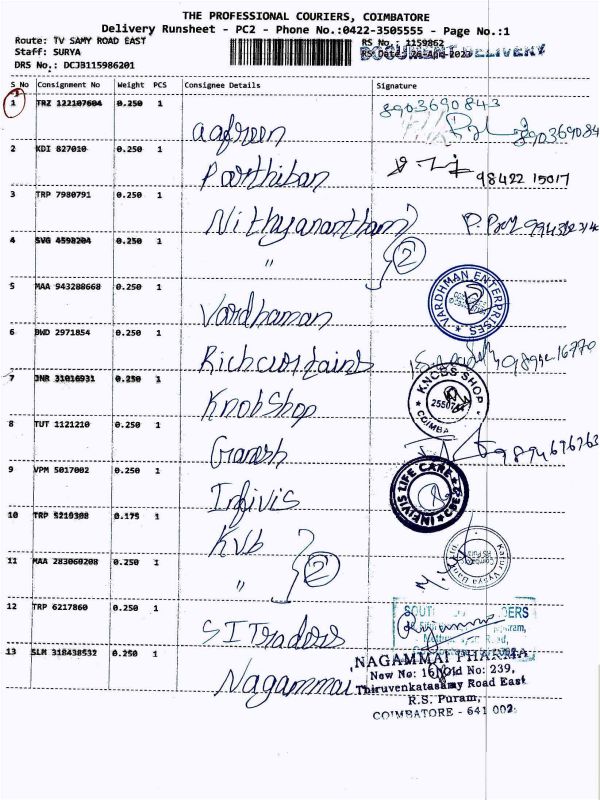 THE PROFESSIONAL COURIERS, COIMBATORE
Delivery Runsheet - PC2 - Phone No.:0422-3505555 - Page No.:1
Route: TV SAMY ROAD EAST RS No.: 1159862
Staff: SURYA RS Date: 26-Apr-2023 DOCUMENT DELIVERY
DRS No.: DCJB115986201
S No Consignment No Weight PCS Consignee Details Signature
1 TRZ 122107604 0.250 1 aafreen 8903690843
2 KDI 827010 0.250 1 Parthiban 98422 15017
3 TRP 7980791 0.250 1 Nithyanantham
4 SVG 4598204 0.250 1 " 2
5 MAA 943288668 0.250 1 Vardhaman VARDHMAN ENTERPRISES
6 BWD 2971854 0.250 1 Richcurtains
7 JNR 31016931 0.250 1 KnobShop KNOBS SHOP COIMBA
8 TUT 1121210 0.250 1 Ganesh
9 VPM 5017002 0.250 1 Infivis INFIVIS LIFE CARE
10 TRP 5219308 0.175 1 KVB
11 MAA 283060208 0.250 1 " 2 Karur Vysya Bank
12 TRP 6217860 0.250 1 SI Traders
13 SLM 318438532 0.250 1 Nagammai NAGAMMAI PHARMA
New No: 16, Old No: 239,
Thiruvenkatasamy Road East
R.S. Puram,
COIMBATORE - 641 002.